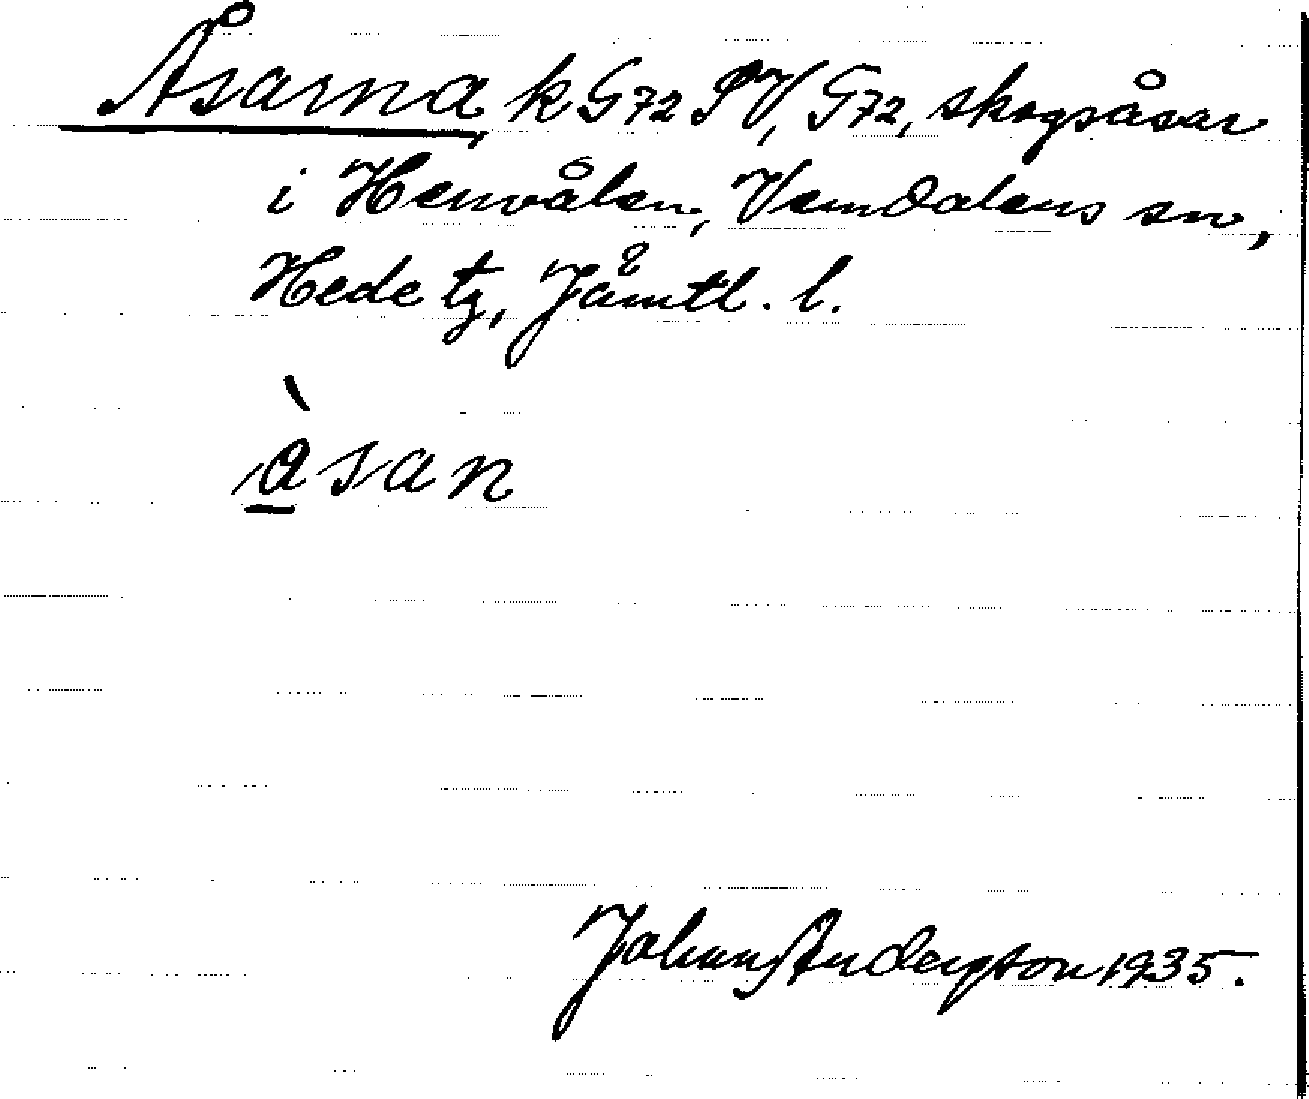 Åsarna, k G72 SV, G72, skogsåsar
i Henvålen, Vemdalens sn,
Hede tg, Jämtl. l.
àsan
Johan Andersson 1935.